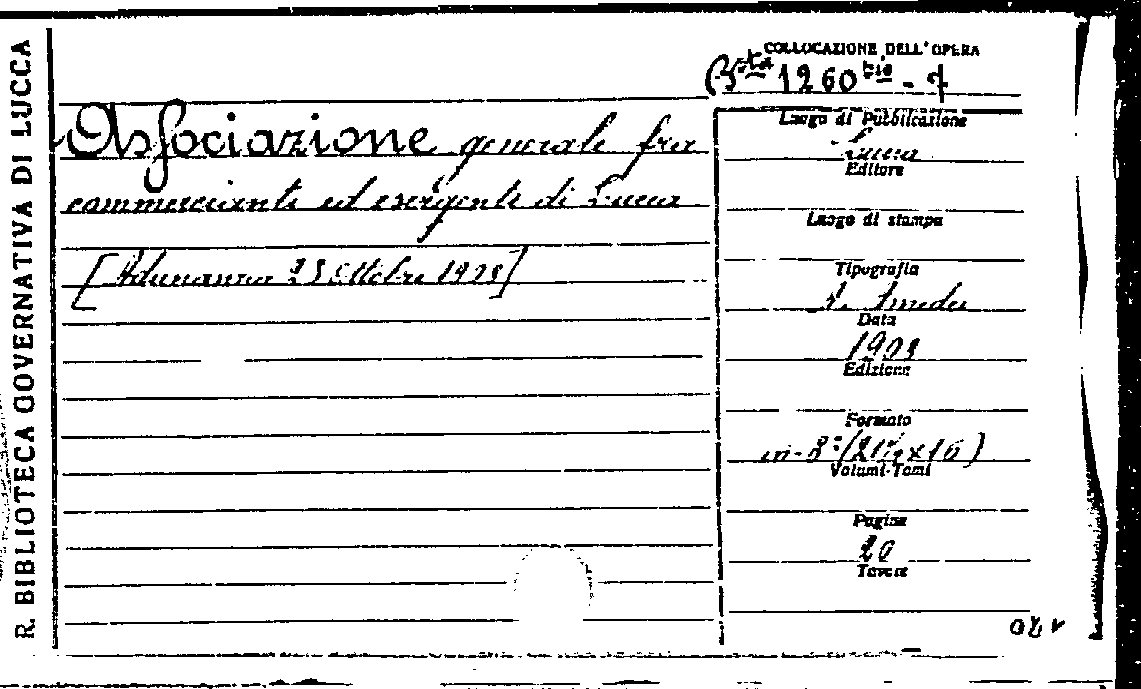 R. BIBLIOTECA GOVERNATIVA DI LUCCA
COLLOCAZIONE DELL'OPERA
B.sta 1260 bis - 7
Associazione generale fra
commercianti ed esergenti di Lucca
[Adunanza 25 Ottobre 1908]
Luogo di Pubblicazione
Lucca
Editore
Luogo di stampa
Tipografia
A. Amedei
Data
1908
Edizione
Formato
in-8° (21½ x 16)
Volumi-Tomi
Pagine
20
Tavole